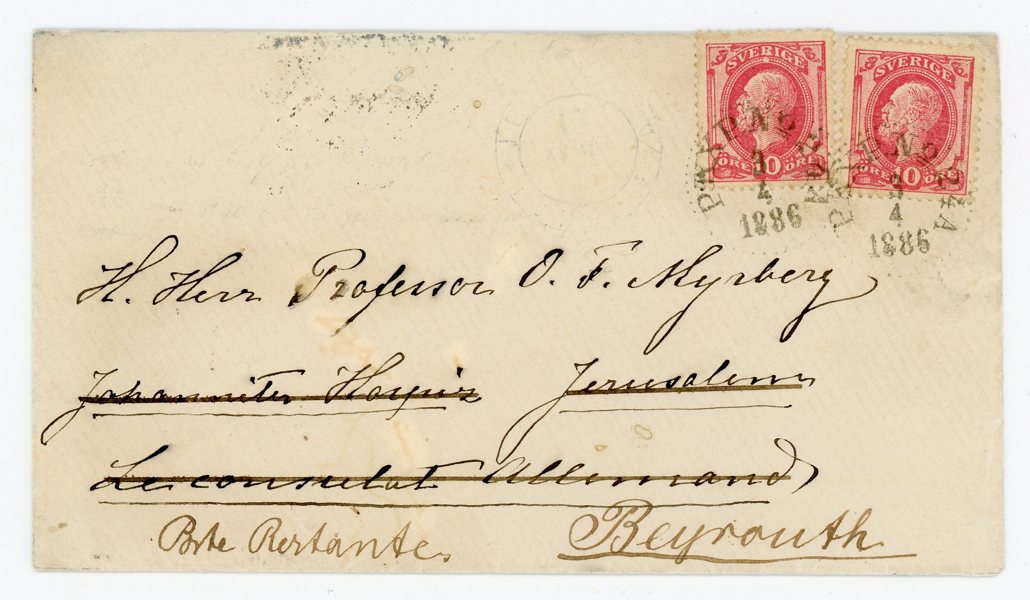 SVERIGE SVERIGE
10 ÖRE ÖRE 10 ÖRE
PKXP.Nº 2
3
4
1886
PKXP.Nº 2.A
3
4
1886
H. Herr Professor O. F. Myrberg
Johanniter Hospiz Jerusalem
Le consulat Allemand
Poste Restante. Beyrouth